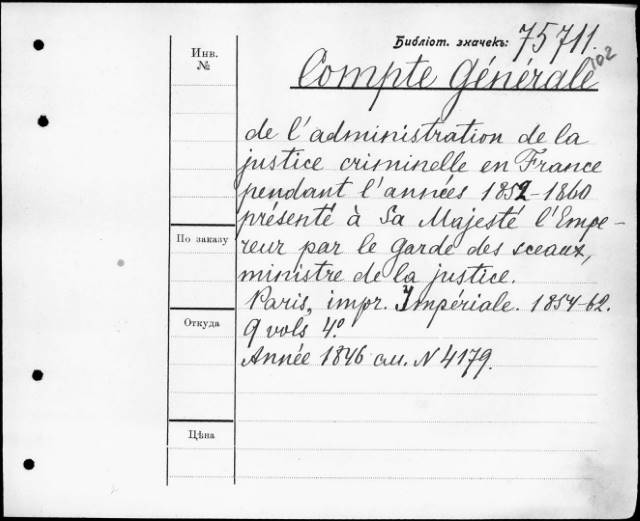 Библіот. значекъ: 75711.
102
Инв. №
Compte Générale
de l'administration de la
justice criminelle en France
pendant l'années 1852-1860
présenté à Sa Majesté l'Empe-
reur par le garde des sceaux,
ministre de la justice.
Paris, impr. Impériale. 1854-62.
9 vols 4º.
Année 1846 см. N 4179.
По заказу
Откуда
Цѣна